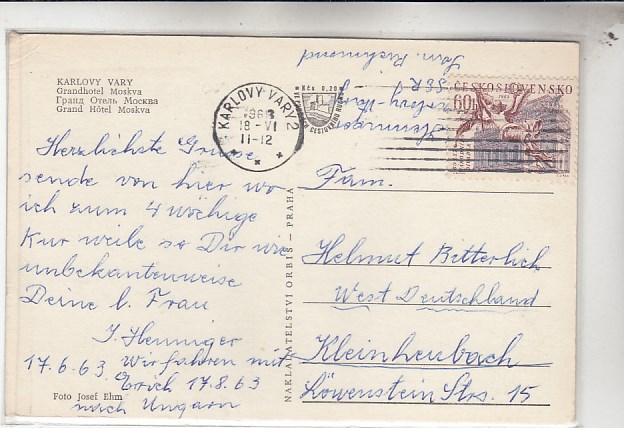 KARLOVY VARY
Grandhotel Moskva
Гранд Отель Москва
Grand Hôtel Moskva
Herzlichste Grüsse
sende von hier wo
ich zum 4 wöchige
Kur weile so Dir wie
unbekantenweise
Deine l. Frau
J. Henniger
17.6.63 Wir fahren mit
Erich 17.8.63
nach Ungarn
Foto Josef Ehm
NAKLADATELSTVÍ ORBIS - PRAHA
KARLOVY VARY 2
1963
18-VI
11-12
Kčs 0,20
ČESKOSLOVENSKO
60h
Henniger
Karlovy Vary
Sam. Richmond
Fam.
Helmut Bitterlich
West Deutschland
Kleinheubach
Löwenstein Strs. 15